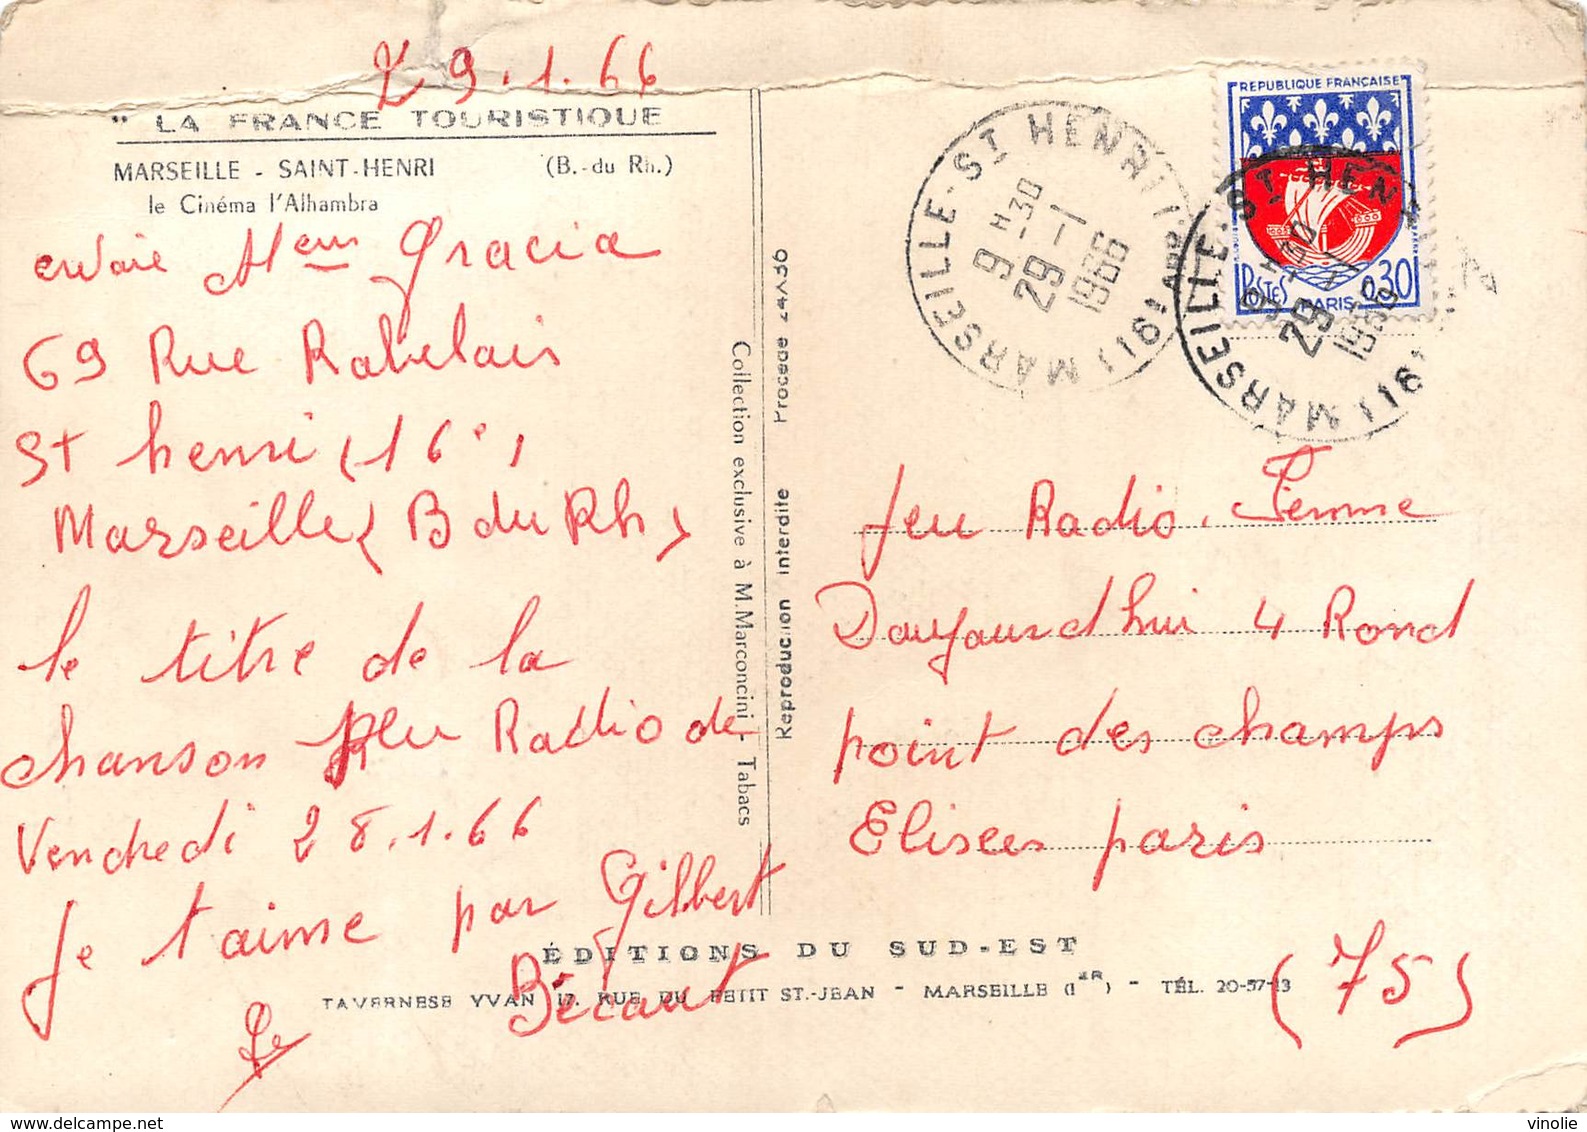 29.1.66
" LA FRANCE TOURISTIQUE
MARSEILLE - SAINT-HENRI (B.-du Rh.)
le Cinéma l'Alhambra
envoie Mem Gracia
69 Rue Rabelais
St henri (16e)
Marseille (B du Rh)
le titre de la
chanson Jeu Radio de
Vendredi 28.1.66
je t'aime par Gilbert
Bécaut
Collection exclusive à M. Marconcini - Tabacs
Reproduction interdite Procédé
REPUBLIQUE FRANÇAISE
POSTES 0,30
PARIS
MARSEILLE-ST HENRI (16e ARR.)
9 H 30
29-1
1966
MARSEILLE-ST HENRI (16e
29-1
1966
Jeu Radio. Femme
Daujourdhui 4 Rond
point des champs
Elisees paris
(75)
ÉDITIONS DU SUD-EST
TAVERNESE YVAN 17, RUE DU PETIT ST.-JEAN - MARSEILLE (1ER) - TÉL. 20-57-13
vinolie